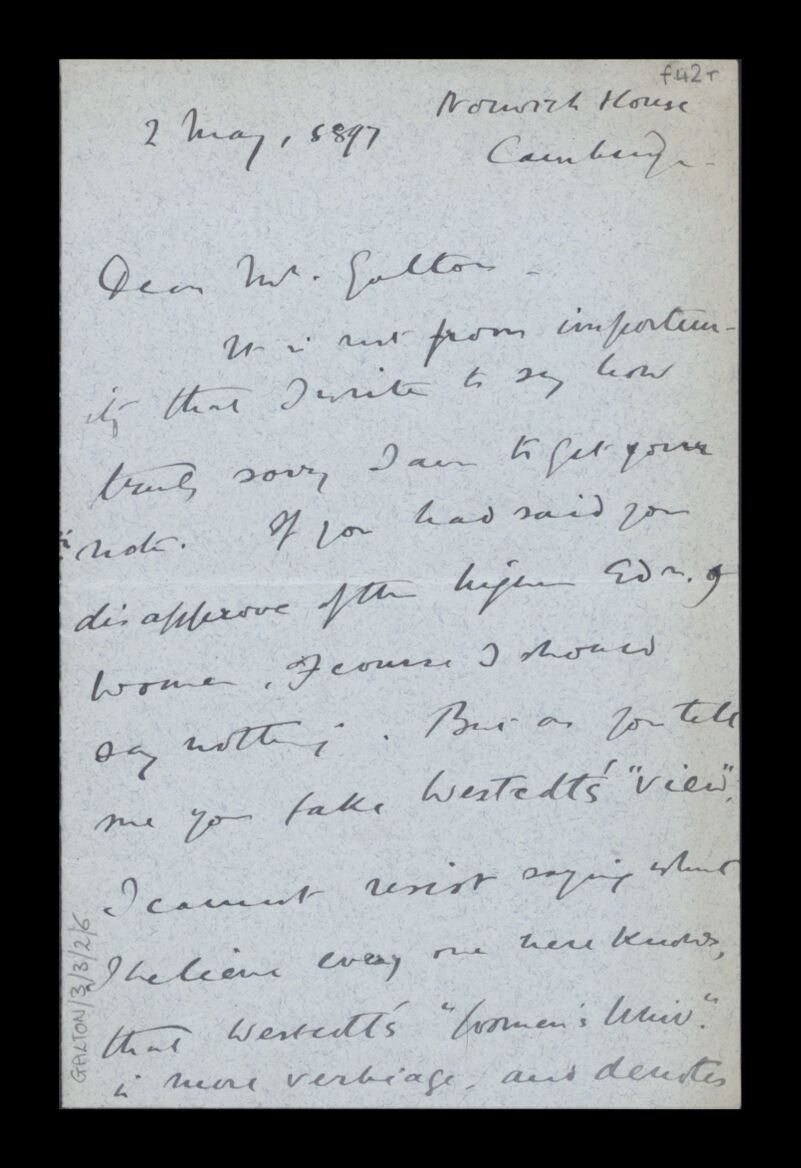 f42r
Norwich House
Cambridge.
2 May, 1897
Dear Mr. Galton -
It is not from importun-
ity that I write to say how
truly sorry I am to get your
note. If you had said you
disapprove of the higher Edn. of
Women, of course I should
say nothing. But as you tell
me you take Westcott's "view",
I cannot resist saying what
I believe every one here knows,
that Westcott's "Women's Univ."
is mere verbiage, and denotes
GALTON/3/3/2/6